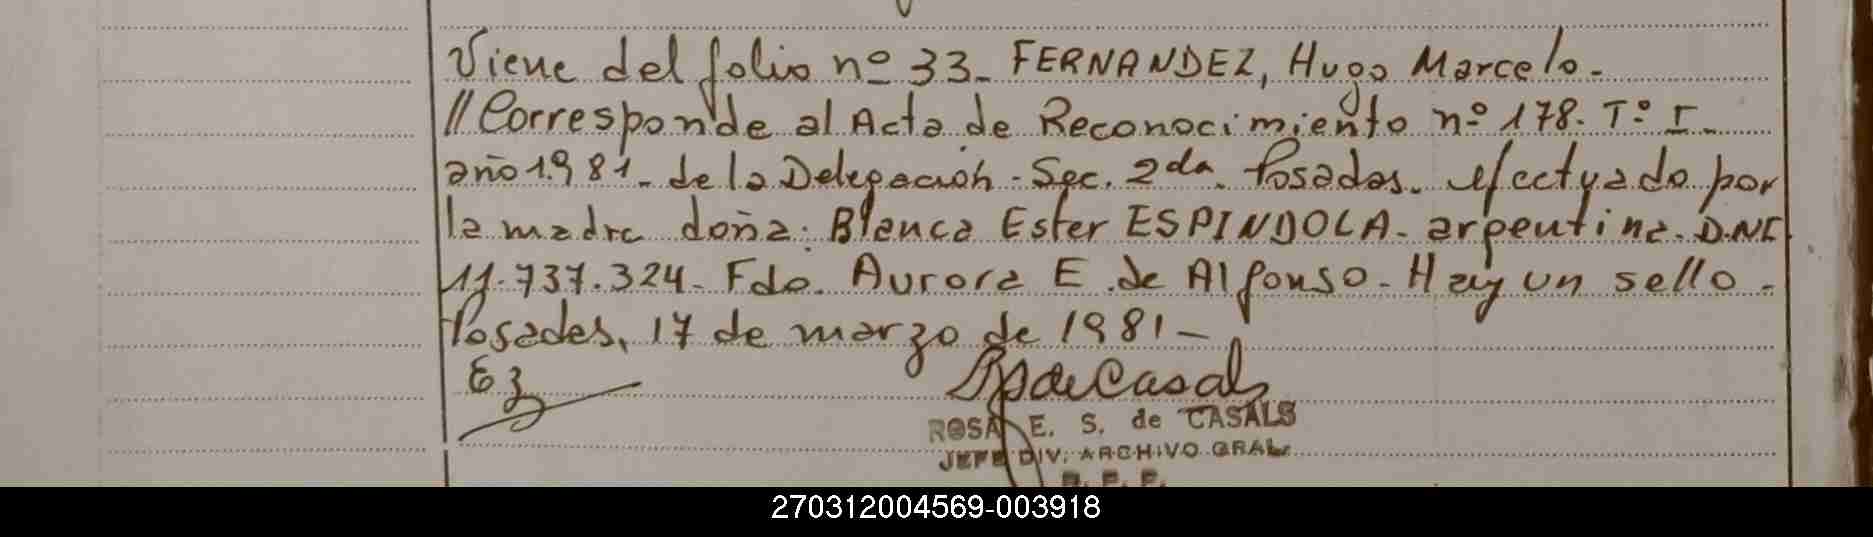 Viene del folio nº 33- FERNANDEZ, Hugo Marcelo.-
//Corresponde al Acta de Reconocimiento nº 178. Tº I-
año 1.981- de la Delegación - Sec. 2da. Posadas. efectuado por
la madre doña: Blanca Ester ESPINDOLA- argentina. D.NI
11.737.324- Fdo. Aurora E. de Alfonso- Hay un sello.-
Posadas, 17 de marzo de 1981-
ROSA E. S. de CASALS
JEFE DIV. ARCHIVO GRAL.
270312004569-003918